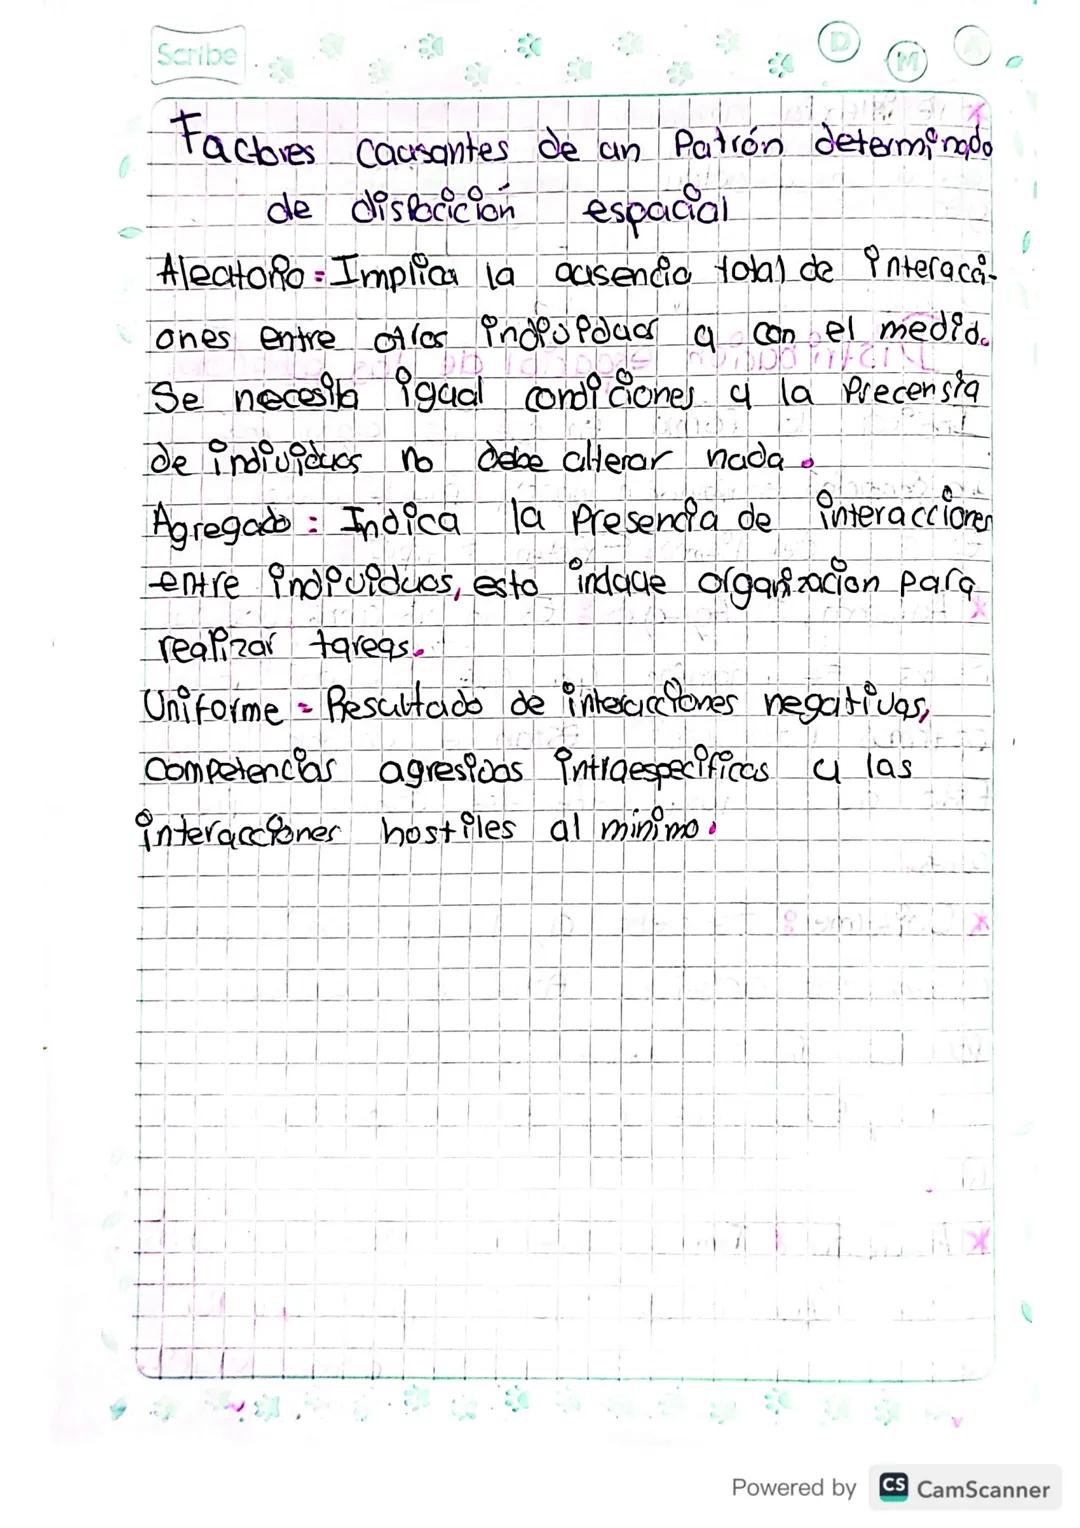 Scribe
D M A
Factores causantes de un Patrón determinado
de dispocición espacial
Aleatorio = Implica la ausencia total de interacci-
ones entre otros individuos y con el medio.
Se necesita igual condiciones y la Precensia
de individuos no debe alterar nada.
Agregado : Indica la Presencia de interacciones
entre individuos, esto indaue organizacion para
realizar tareas.
Uniforme = Resultado de interacciones negativas,
Competencias agresidas intraespecificas y las
interacciones hostiles al minimo.
Powered by CS CamScanner